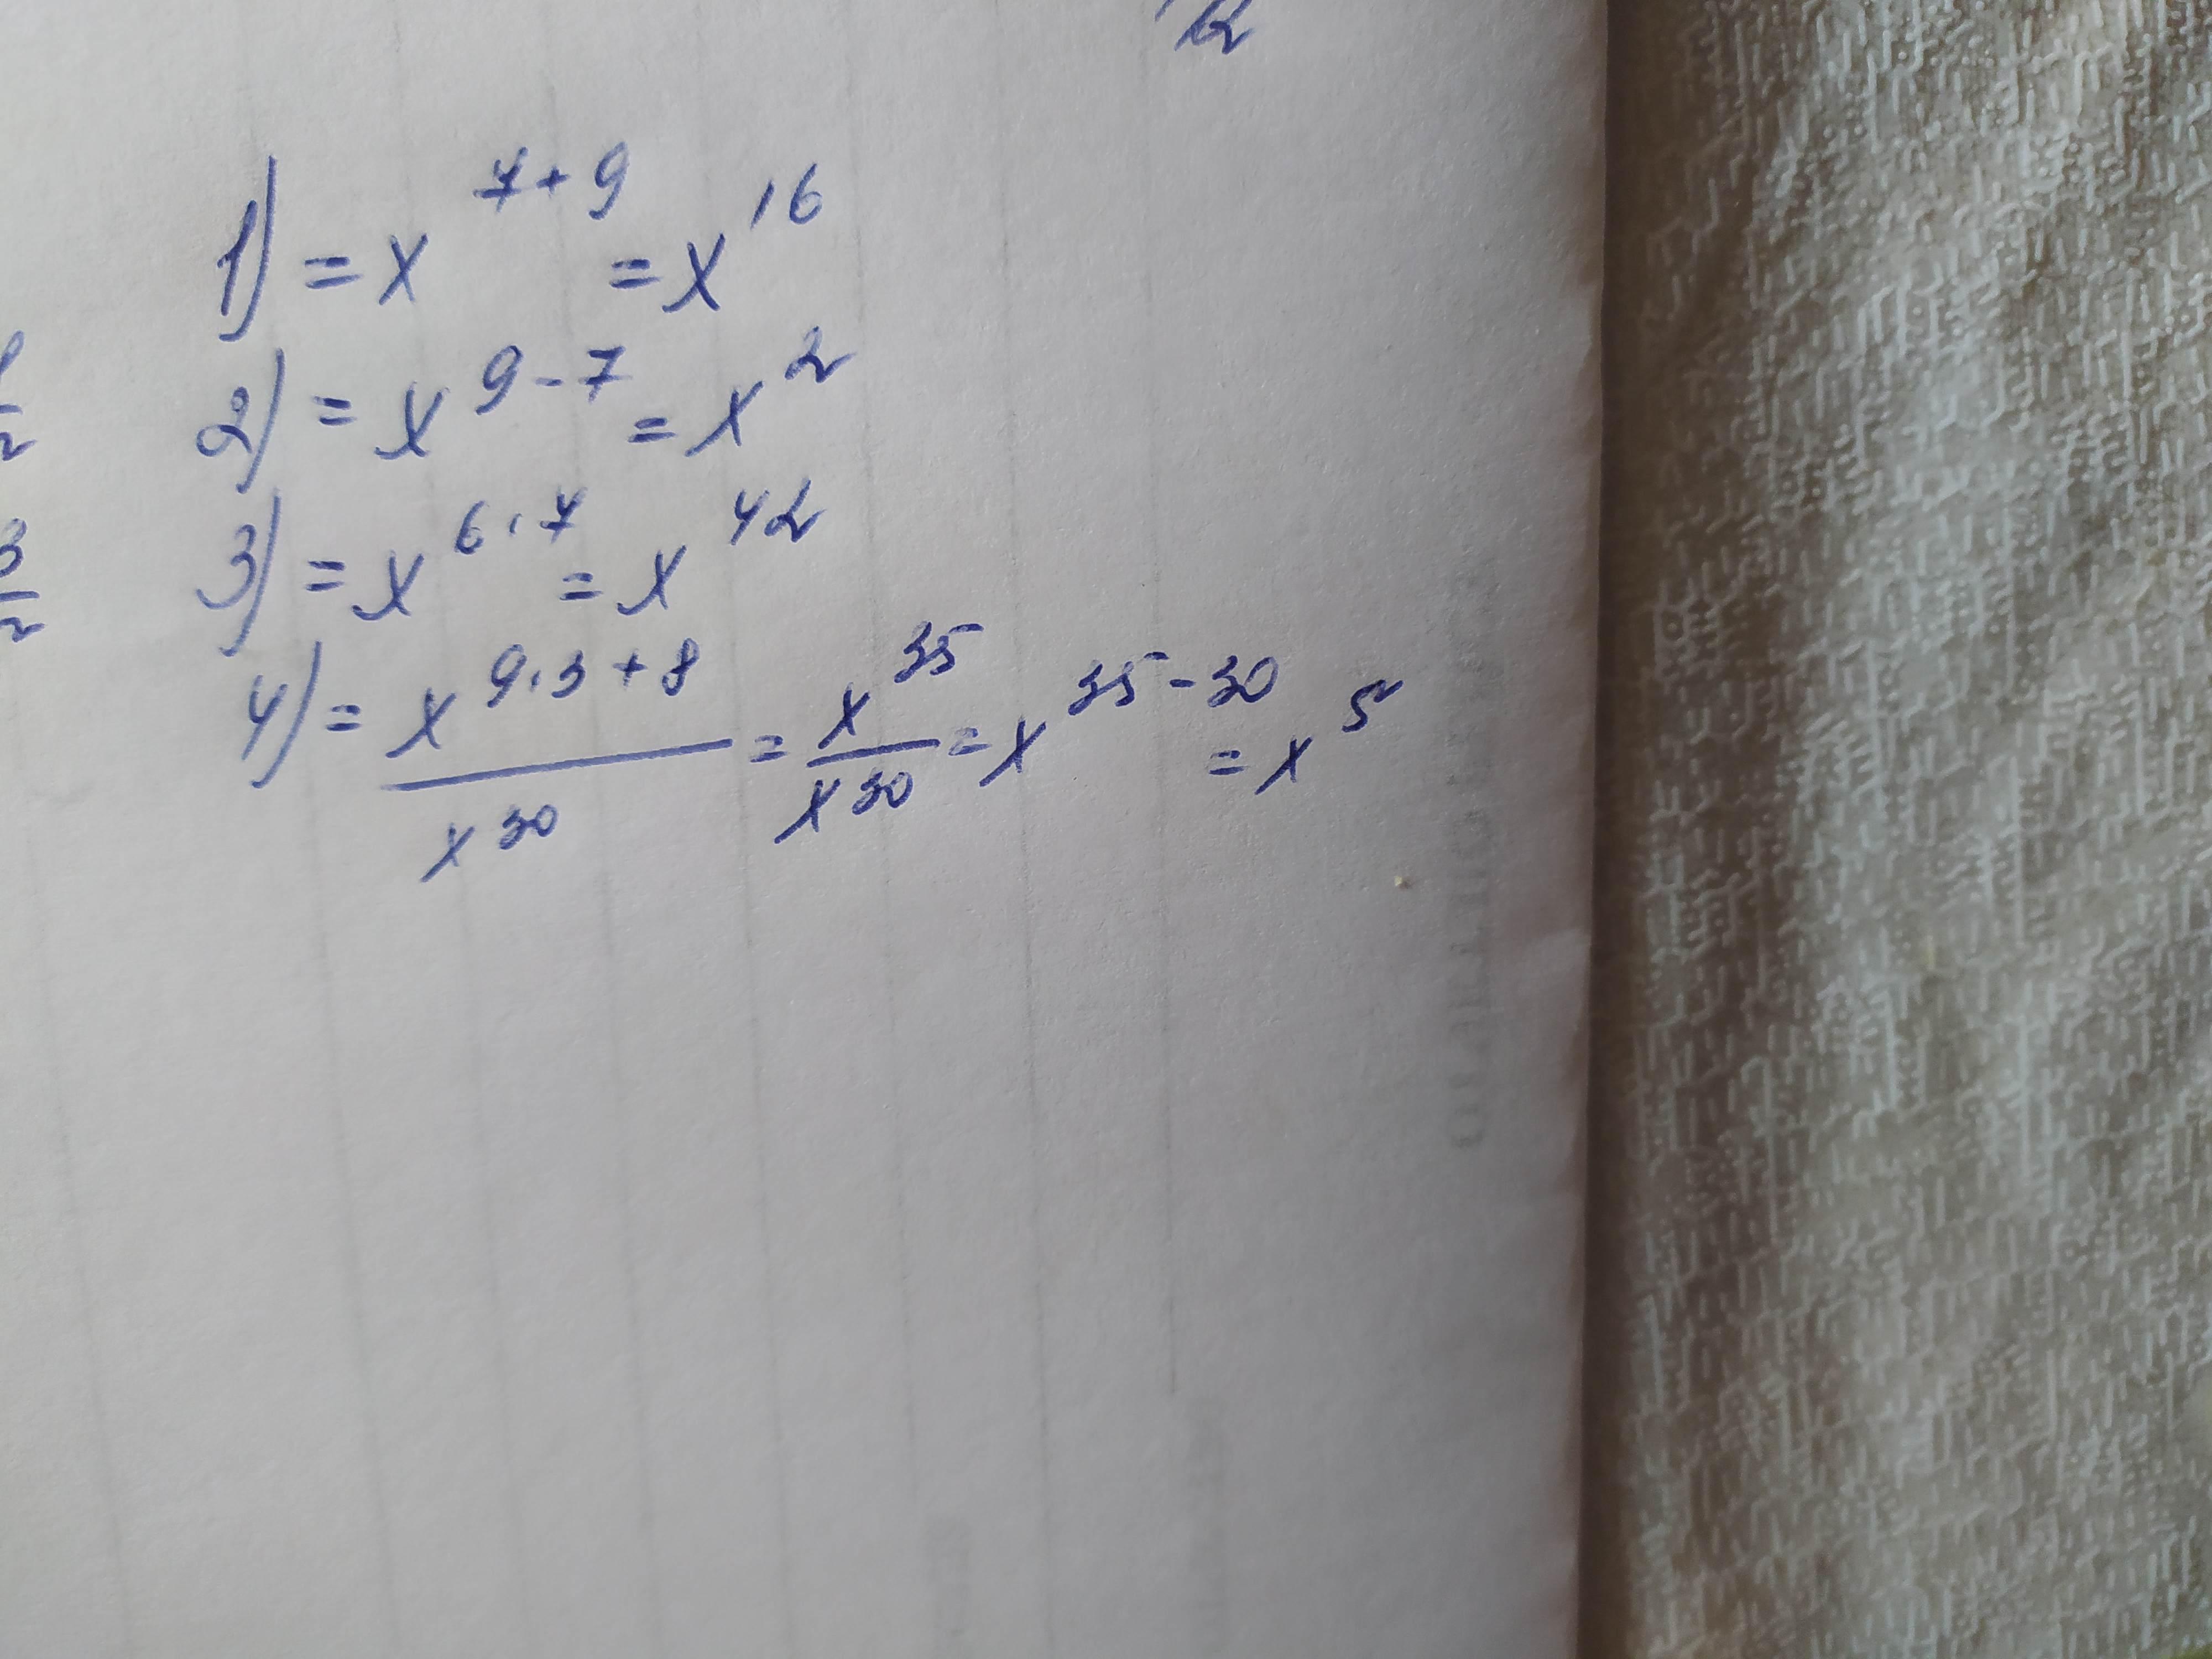 1) = x^{7+9} = x^{16}
2) = x^{9-7} = x^{2}
3) = x^{6·7} = x^{42}
4) = \frac{x^{9·3+8}}{x^{30}} = \frac{x^{35}}{x^{30}} = x^{35-30} = x^{5}